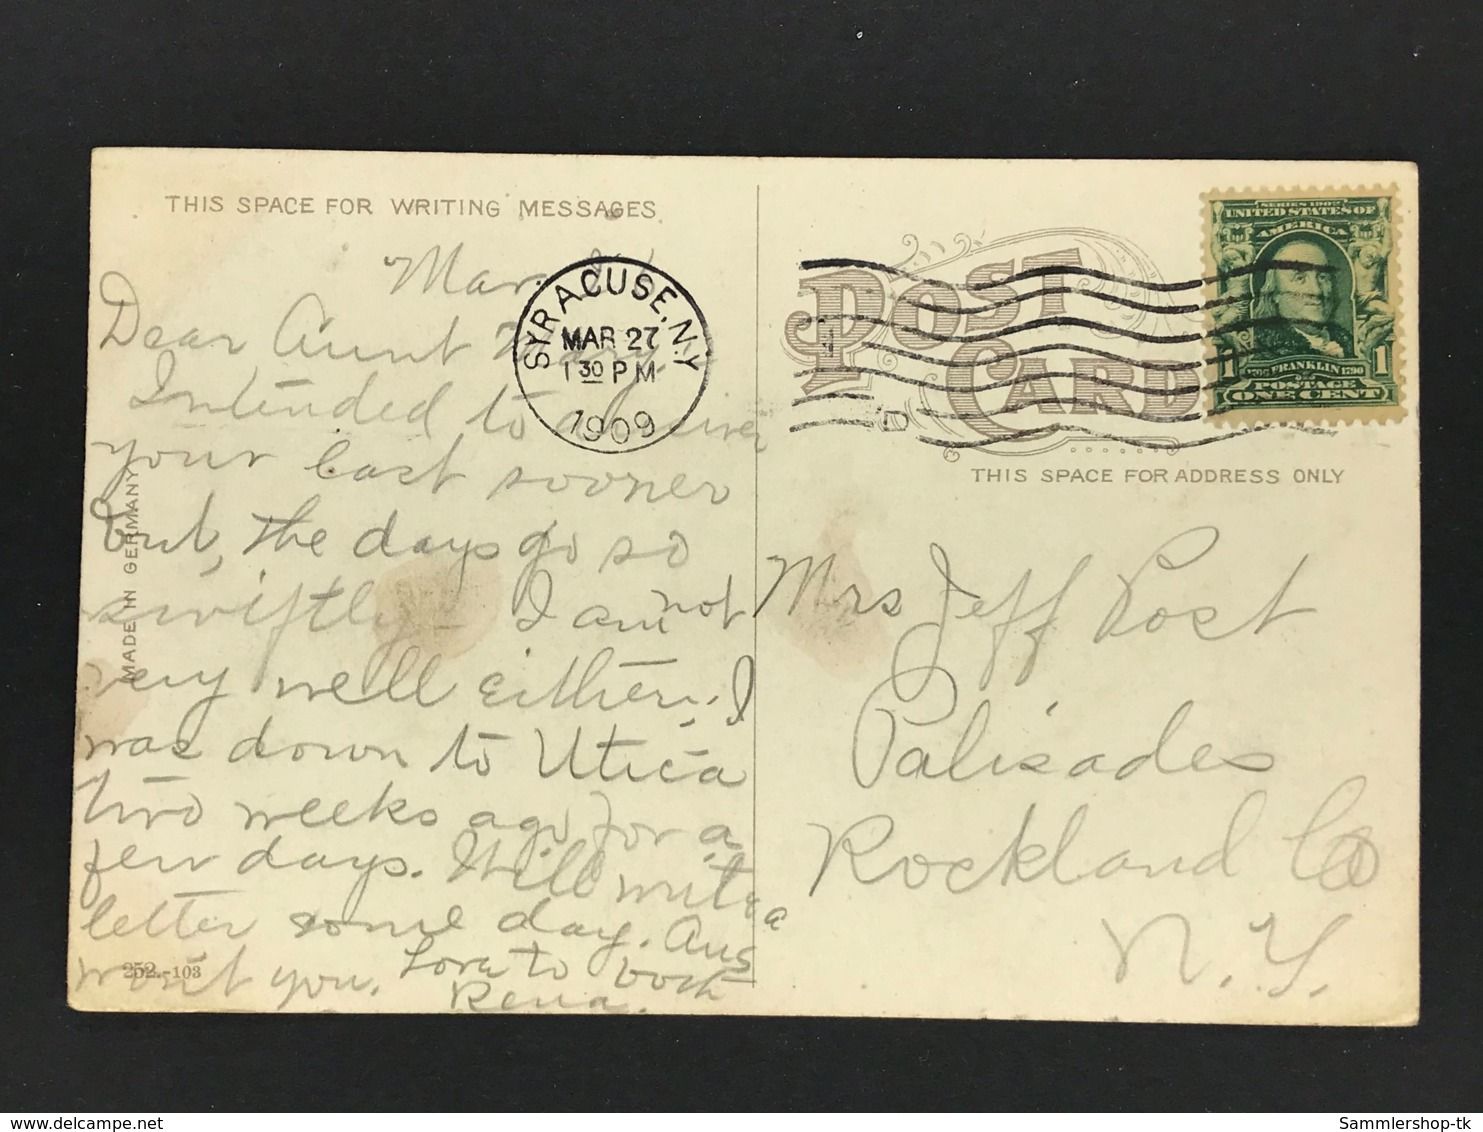 THIS SPACE FOR WRITING MESSAGES
Mar.
Dear Aunt Mary
Intended to answer
your last sooner
but, the days go so
swiftly - I am not
very well either, I
was down to Utica
two weeks ago for a
few days. Will write a
letter some day. Ans
won't you. Love to both
Rena.
MADE IN GERMANY
252.-103
SYRACUSE, N.Y.
MAR 27
1 30 PM
1909
POST CARD
THIS SPACE FOR ADDRESS ONLY
SERIES 1902
UNITED STATES OF
AMERICA
1706 FRANKLIN 1790
1 POSTAGE 1
ONE CENT
Mrs Jeff Post
Palisades
Rockland Co
N.Y.
Sammlershop-tk
delcampe.net